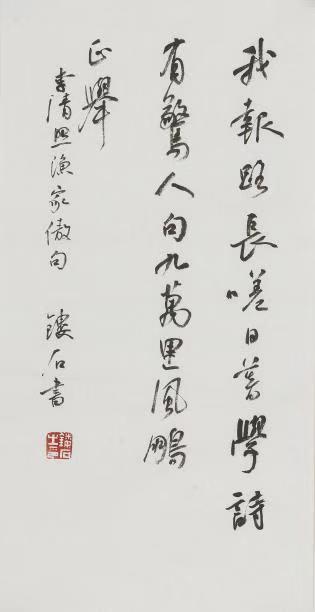 我報路長嗟日暮學詩
有驚人句九萬里風鵬
正舉
李清照漁家傲句
鏤石書